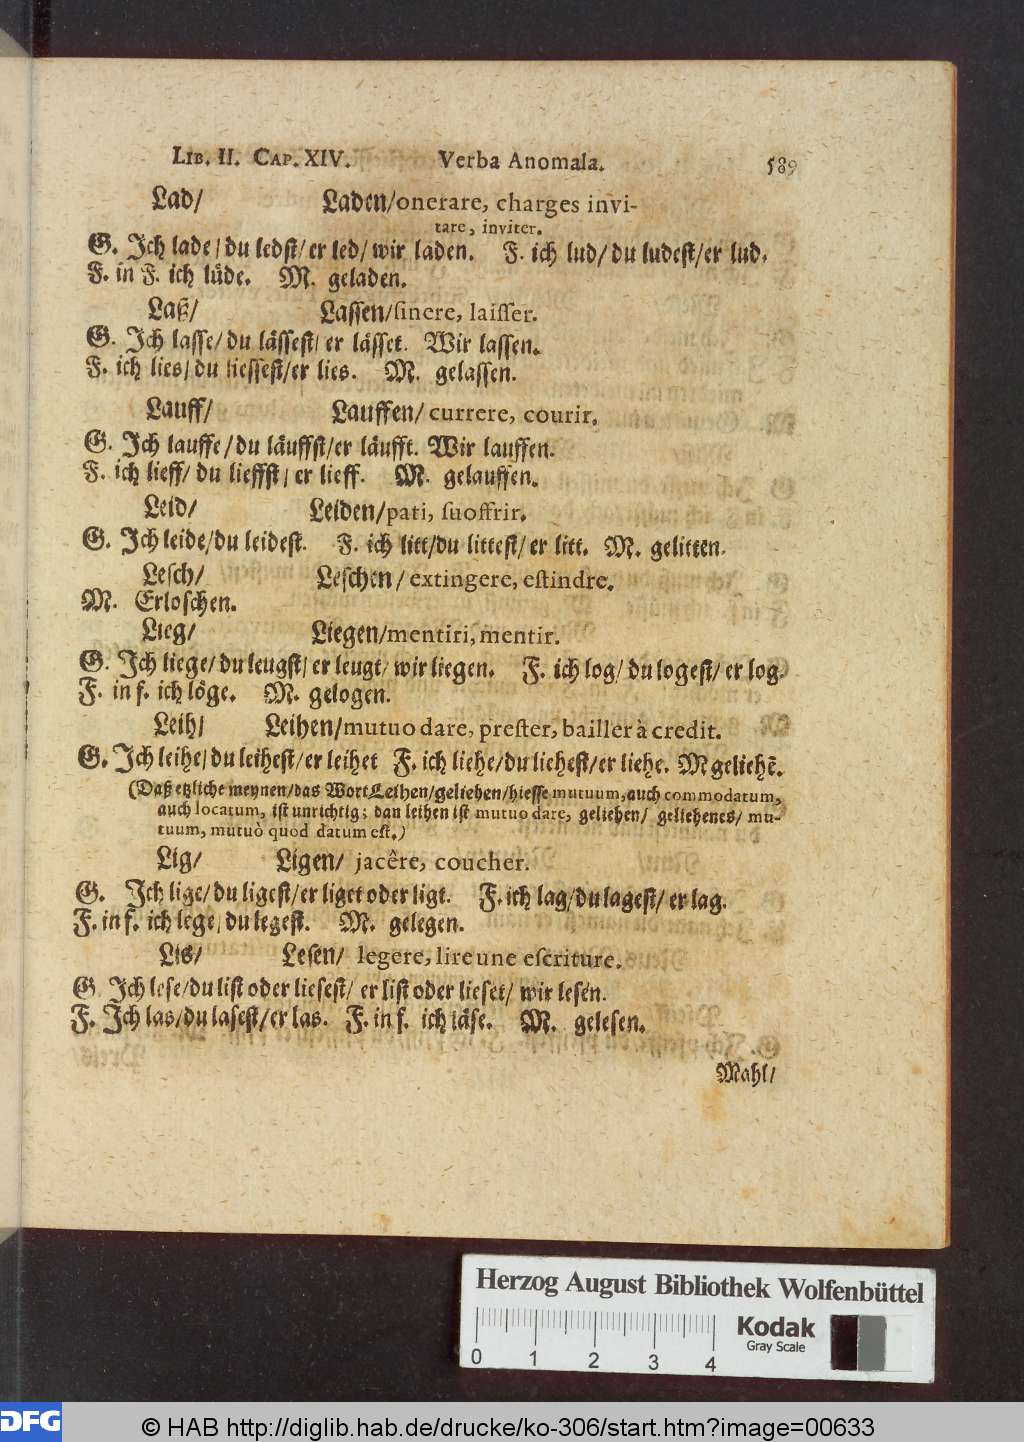 LIB. II. CAP. XIV. Verba Anomala. 589
Lad/ Laden/onerare, charges invi-
tare, inviter.
G. Ich lade/du ledst/er led/wir laden. F. ich lud/du ludest/er lud.
F. in F. ich lüde. M. geladen.
Laß/ Lassen/sinere, laisser.
G. Ich lasse/du lässest/er lässet. Wir lassen.
F. ich lies/du liessest/er lies. M. gelassen.
Lauff/ Lauffen/currere, courir.
G. Ich lauffe/du läuffst/er läufft. Wir lauffen.
F. ich lieff/du lieffst/er lieff. M. gelauffen.
Leid/ Leiden/pati, suoffrir.
G. Ich leide/du leidest. F. ich litt/du littest/er litt. M. gelitten.
Lesch/ Leschen/extingere, estindre.
M. Erloschen.
Lieg/ Liegen/mentiri, mentir.
G. Ich liege/du leugst/er leugt/wir liegen. F. ich log/du logest/er log.
F. in f. ich löge. M. gelogen.
Leih/ Leihen/mutuo dare, prester, bailler à credit.
G. Ich leihe/du leihest/er leihet F. ich liehe/du liehest/er liehe. M geliehẽ.
(Daß etzliche meynen/das Wort Leihen/geliehen/hiesse mutuum, auch commodatum,
auch locatum, ist unrichtig; dan leihen ist mutuo dare, geliehen/ geliehenes/ mu-
tuum, mutuò quod datum est.)
Lig/ Ligen/ jacêre, coucher.
G. Ich lige/du ligest/er liget oder ligt. F. ich lag/du lagest/er lag.
F. in f. ich lege/du legest. M. gelegen.
Lis/ Lesen/ legere, lire une escriture.
G. Ich lese/du list oder liesest/ er list oder lieset/ wir lesen.
F. Ich las/du lasest/er las. F. in f. ich läse. M. gelesen.
Mahl/
Herzog August Bibliothek Wolfenbüttel
0 1 2 3 4
Kodak
Gray Scale
DFG
© HAB http://diglib.hab.de/drucke/ko-306/start.htm?image=00633